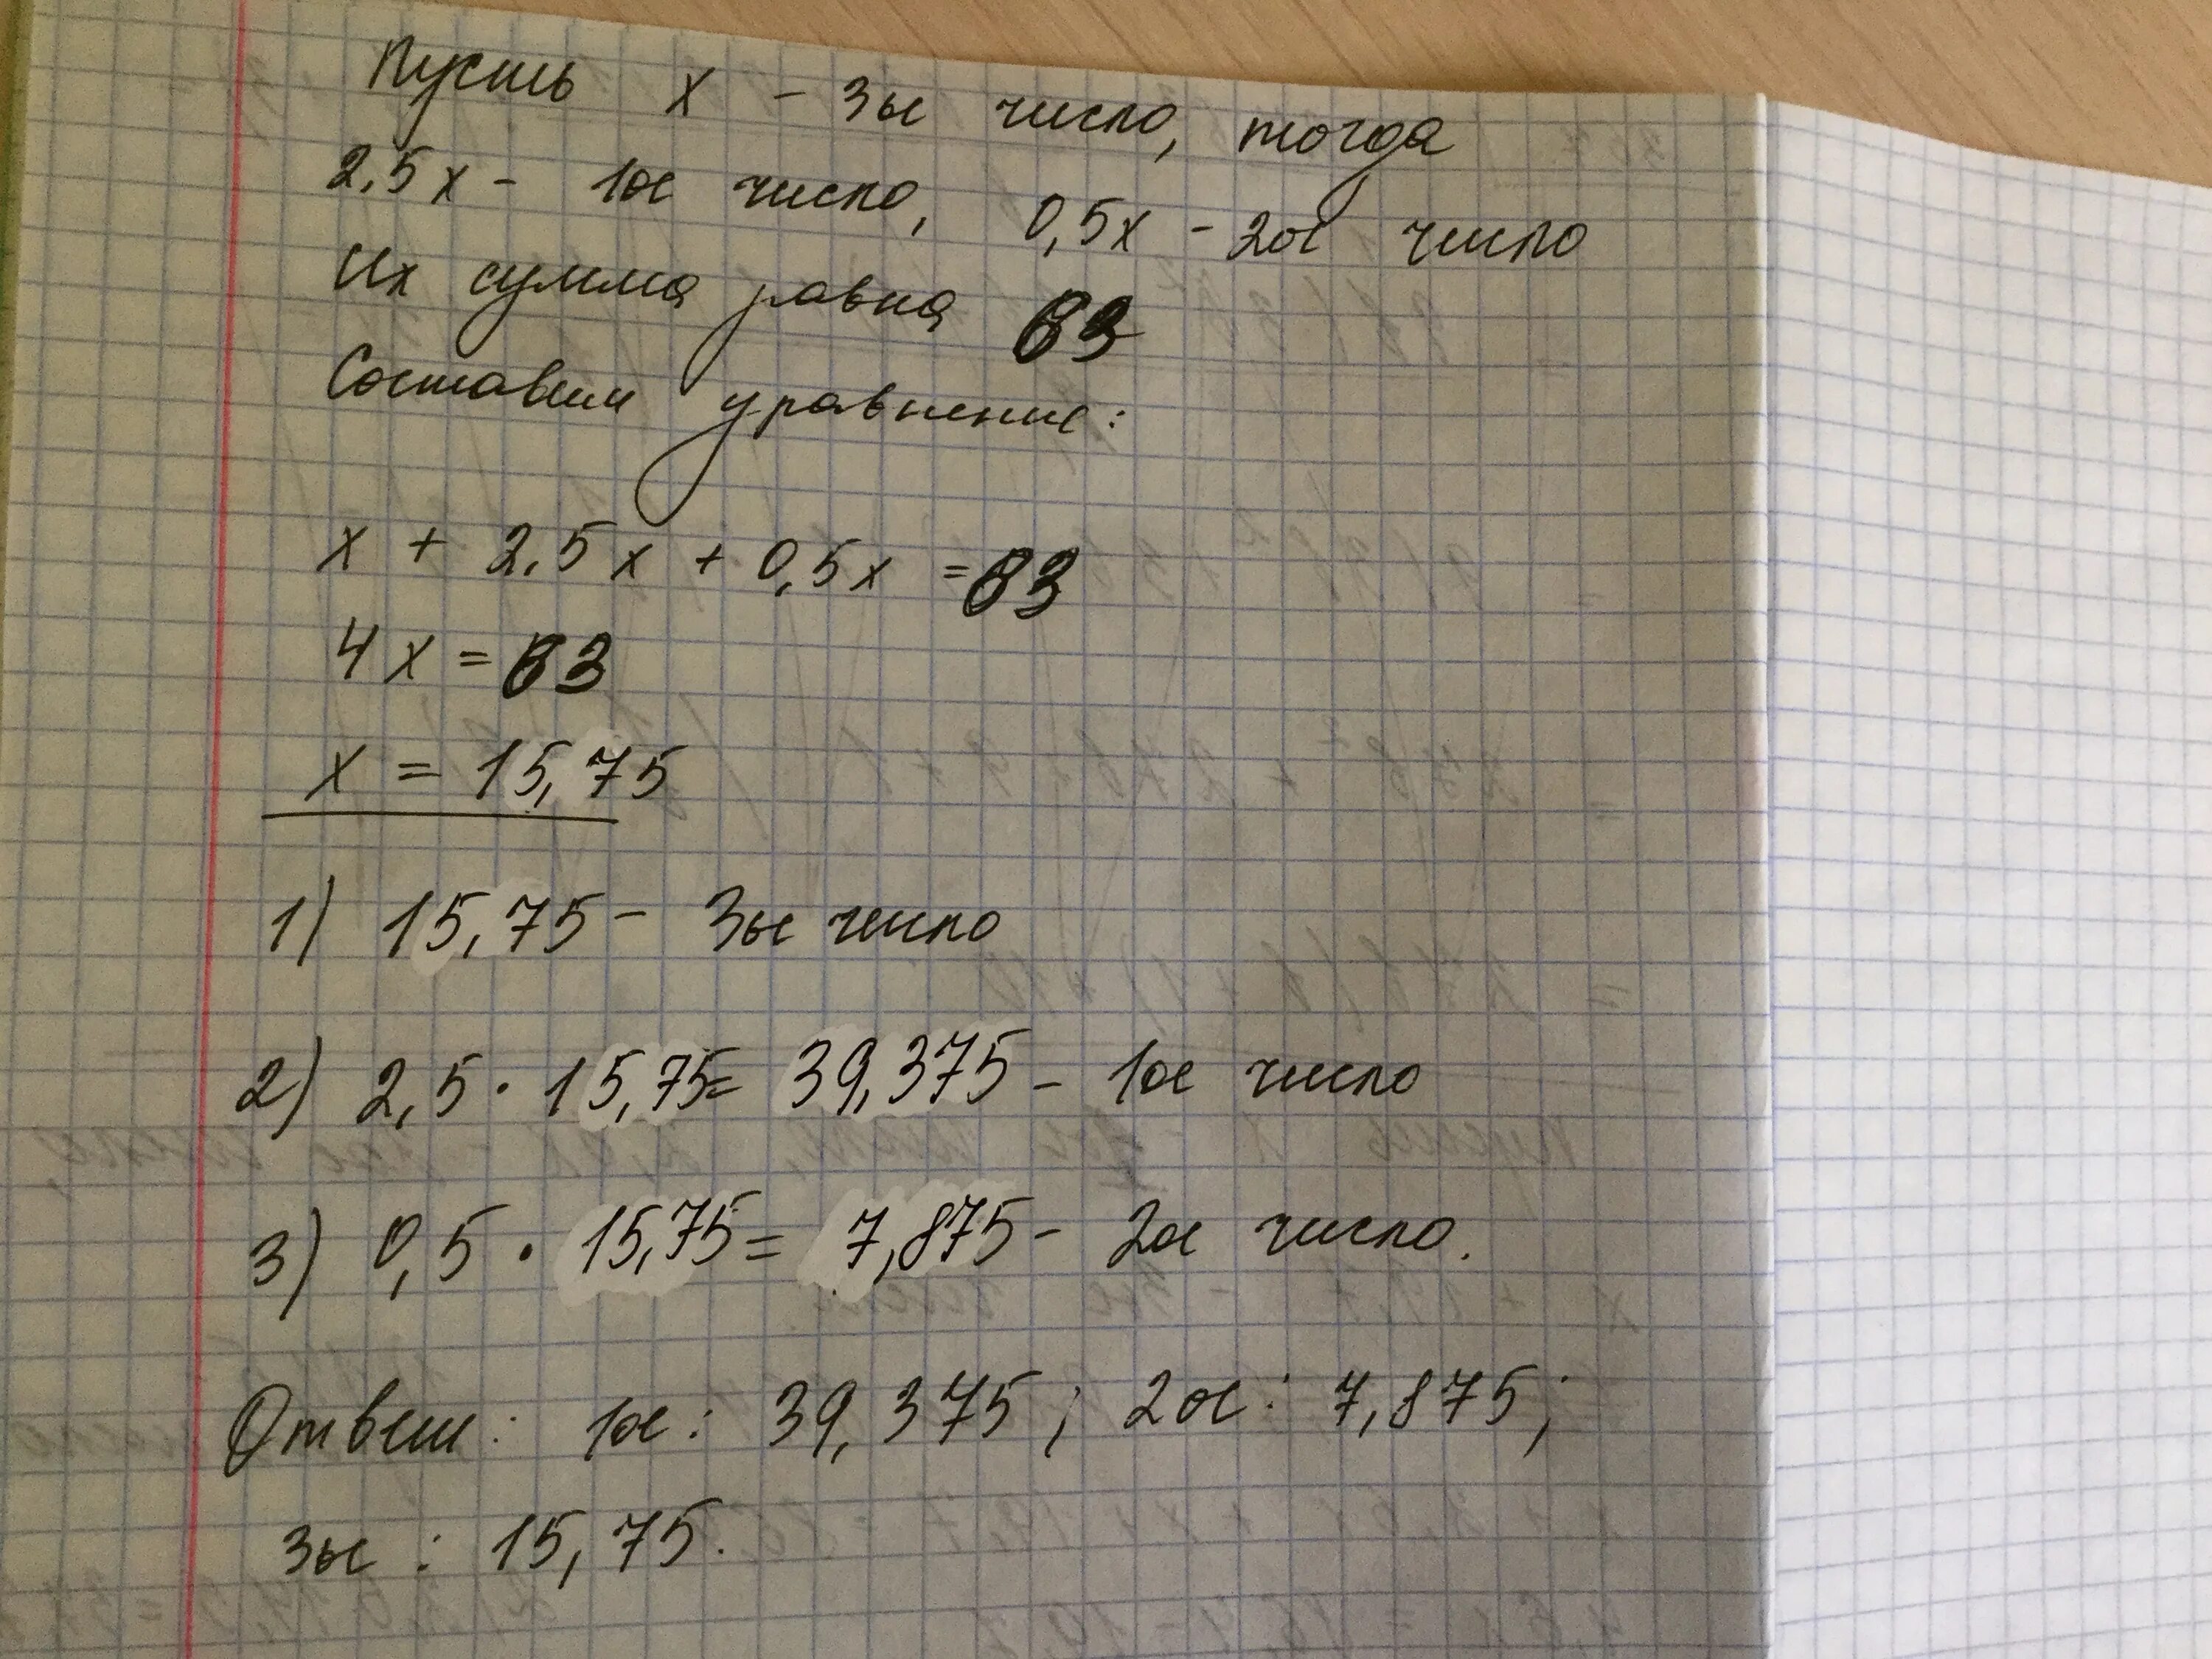 Пусть x - 3ье число, тогда
2,5x - 1ое число, 0,5x - 2ое число
Их сумма равна 63
Составим уравнение:
x + 2,5x + 0,5x = 63
4x = 63
x = 15,75
1) 15,75 - 3ье число
2) 2,5 · 15,75 = 39,375 - 1ое число
3) 0,5 · 15,75 = 7,875 - 2ое число.
Ответ: 1ое: 39,375; 2ое: 7,875;
3ье: 15,75.